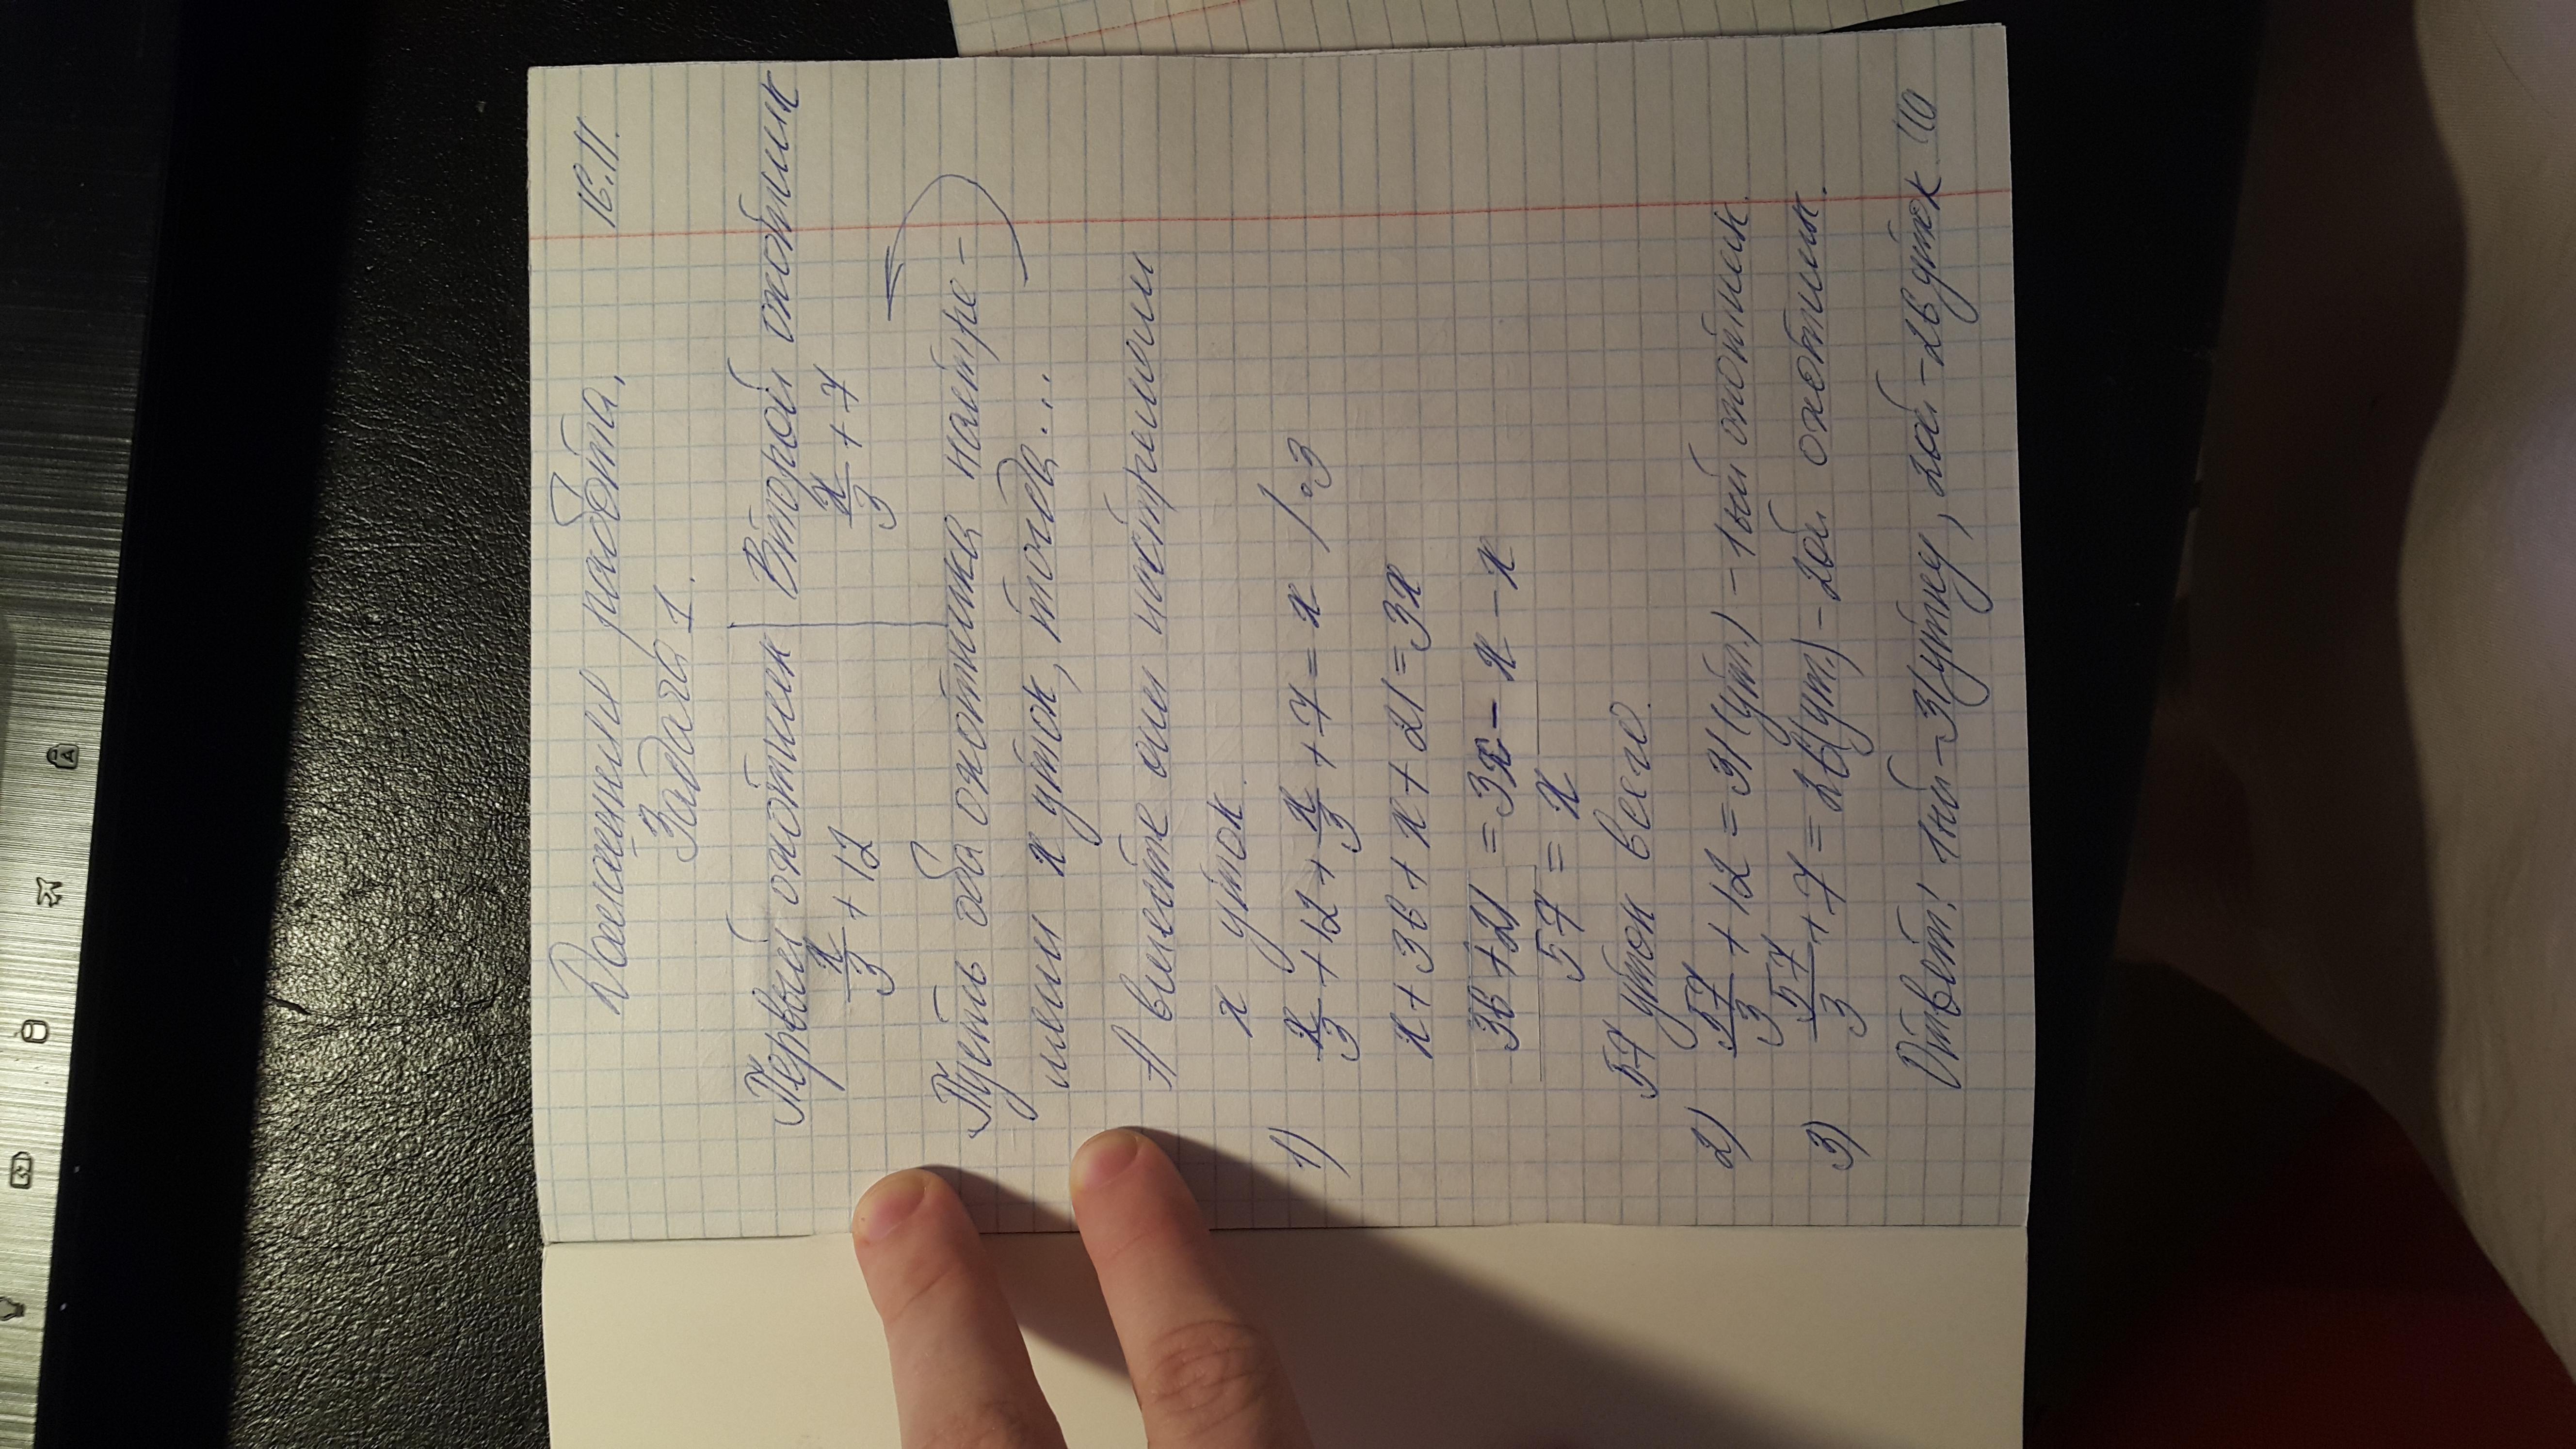 Домашняя работа. 16.11.
Задача 1.
Первый охотник | Второй охотник
x/3 + 12 x/3 + 7
Пусть оба охотника настре-
лили x уток, тогда...
А вместе они настрелили
x уток.
1) x/3 + 12 + x/3 + 7 = x / ·3
x + 36 + x + 21 = 3x
36 + 21 = 3x - x - x
57 = x
57 уток всего.
2) 57/3 + 12 = 31(ут.) - 1ый охотник.
3) 57/3 + 7 = 26(ут.) - 2ой охотник.
Ответ: 1ый - 31 утку, 2ой - 26 уток.